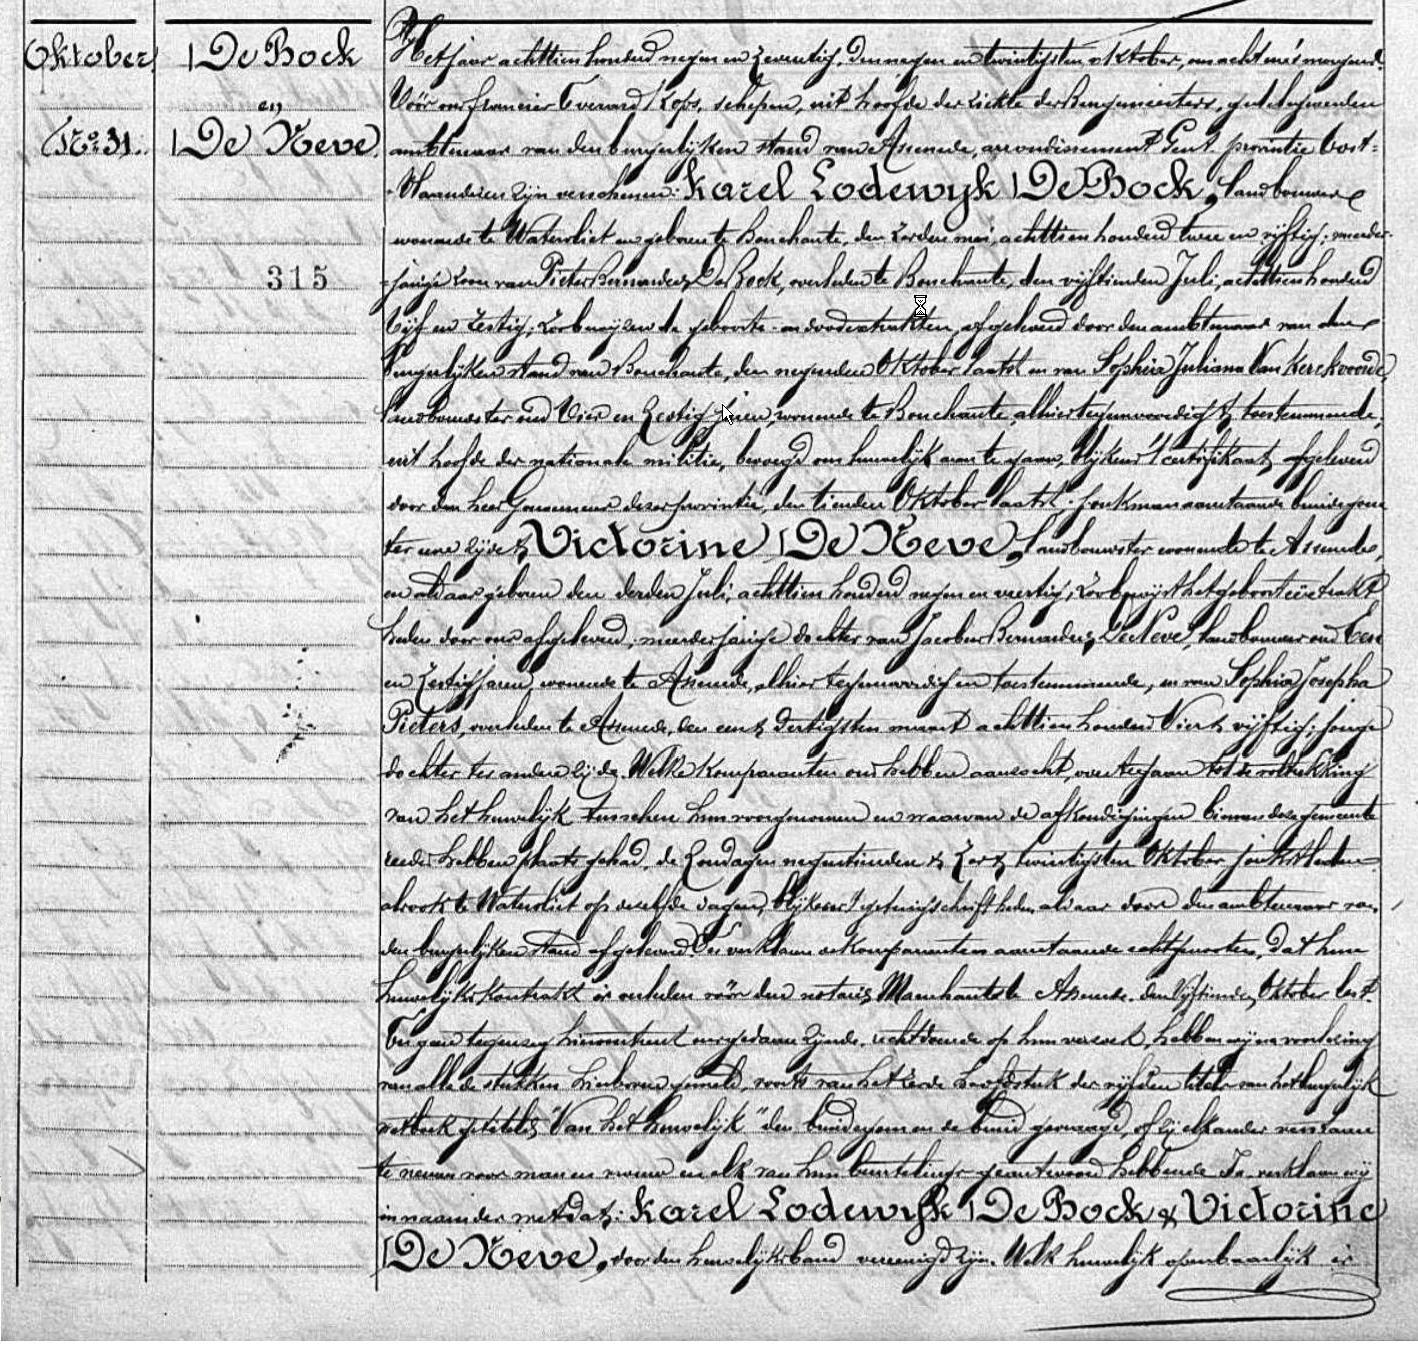 Oktober
No 31.
De Bock
en
De Neve
315
Het jaar achttien honderd negen en zeventig, den negen en twintigsten oktober, om acht ure 's morgends.
Vóór ons Francies Everard Kops, schepen, uit hoofde der ziekte des Burgemeesters, gedelegeerden
ambtenaar van den burgerlijken stand van Assenede, arrondissement Gent, provintie Oost=
Vlaanderen zijn verschenen: Karel Lodewyk De Bock, landbouwer
wonende te Watervliet en geboren te Bouchaute, den zesden mei, achttien honderd twee en vijftig; meerder-
=jarige zoon van Pieter Bernardus De Bock, overleden te Bouchaute, den vijftienden Juli, achttien honderd
Vijf en Zestig; zoo bewijzen de geboorte- en doodextrakten, afgeleverd door den ambtenaar van den
burgerlijken stand van Bouchaute, den negenden Oktober laatst en van Sophia Juliana Van Kerckvoorde,
landbouwster oud Vier en Zestig jaren, wonende te Bouchaute, alhier tegenwoordig & toestemmende,
uit hoofde der nationale militie, bevoegd om huwelijk aan te gaan, blijkens 't certifikaat, afgeleverd
door den heer Gouverneur dezer provintie, den tienden Oktober laatst. jonkman aanstaande bruidegom
ter eene zijde &, Victorine De Neve, landbouwster wonende te Assenede,
en aldaar geboren den derden Juli, achttien honderd negen en veertig; zoo bewijst het geboorteëxtrakt
heden door ons afgeleverd; meerderjarige dochter van Jacobus Bernardus De Neve, landbouwer oud Een
en Zestig jaren, wonende te Assenede, alhier tegenwoordig en toestemmende, en van Sophia Josepha
Pieters, overleden te Assenede, den een & dertigsten maart achttien honderd Vier & vijftig; jonge
dochter ter andere zijde. Welke komparanten ons hebben aanzocht, over te gaan tot de voltrekking
van het huwelijk tusschen hun voorgenomen en waarvan de afkondigingen binnen deze gemeente
hebben plaats gehad, de Zondagen negentienden & Zes & twintigsten Oktober
alsook te Watervliet op dezelfde dagen, blijkens 't getuigschrift heden aldaar door den ambtenaar van
den burgerlijken stand afgeleverd. Ons verklaren de komparanten aanstaande echtgenooten, dat hun
huwelijkskontrakt is verleden vóór den notaris te Assenede, den Vijftienden Oktober lest.
Er geen tegenzeg hieromtrent voorgedaan zijnde, rechtdoende op hun verzoek, hebben wij na voorlezing
van alle de stukken hierboven gemeld, voorts van het zesde hoofdstuk der vijfden titel van het burgerlijk
wetboek getiteld "Van het huwelijk" den bruidegom en de bruid gevraagd, of zij elkander
te nemen voor man en vrouw en elk van hun beurtelings geantwoord hebbende Ja verklaren wij
in naam der wet dat: Karel Lodewyk De Bock & Victorine
De Neve, door den huwelijksband vereenigd zijn. Welk huwelijk openbaarlijk is